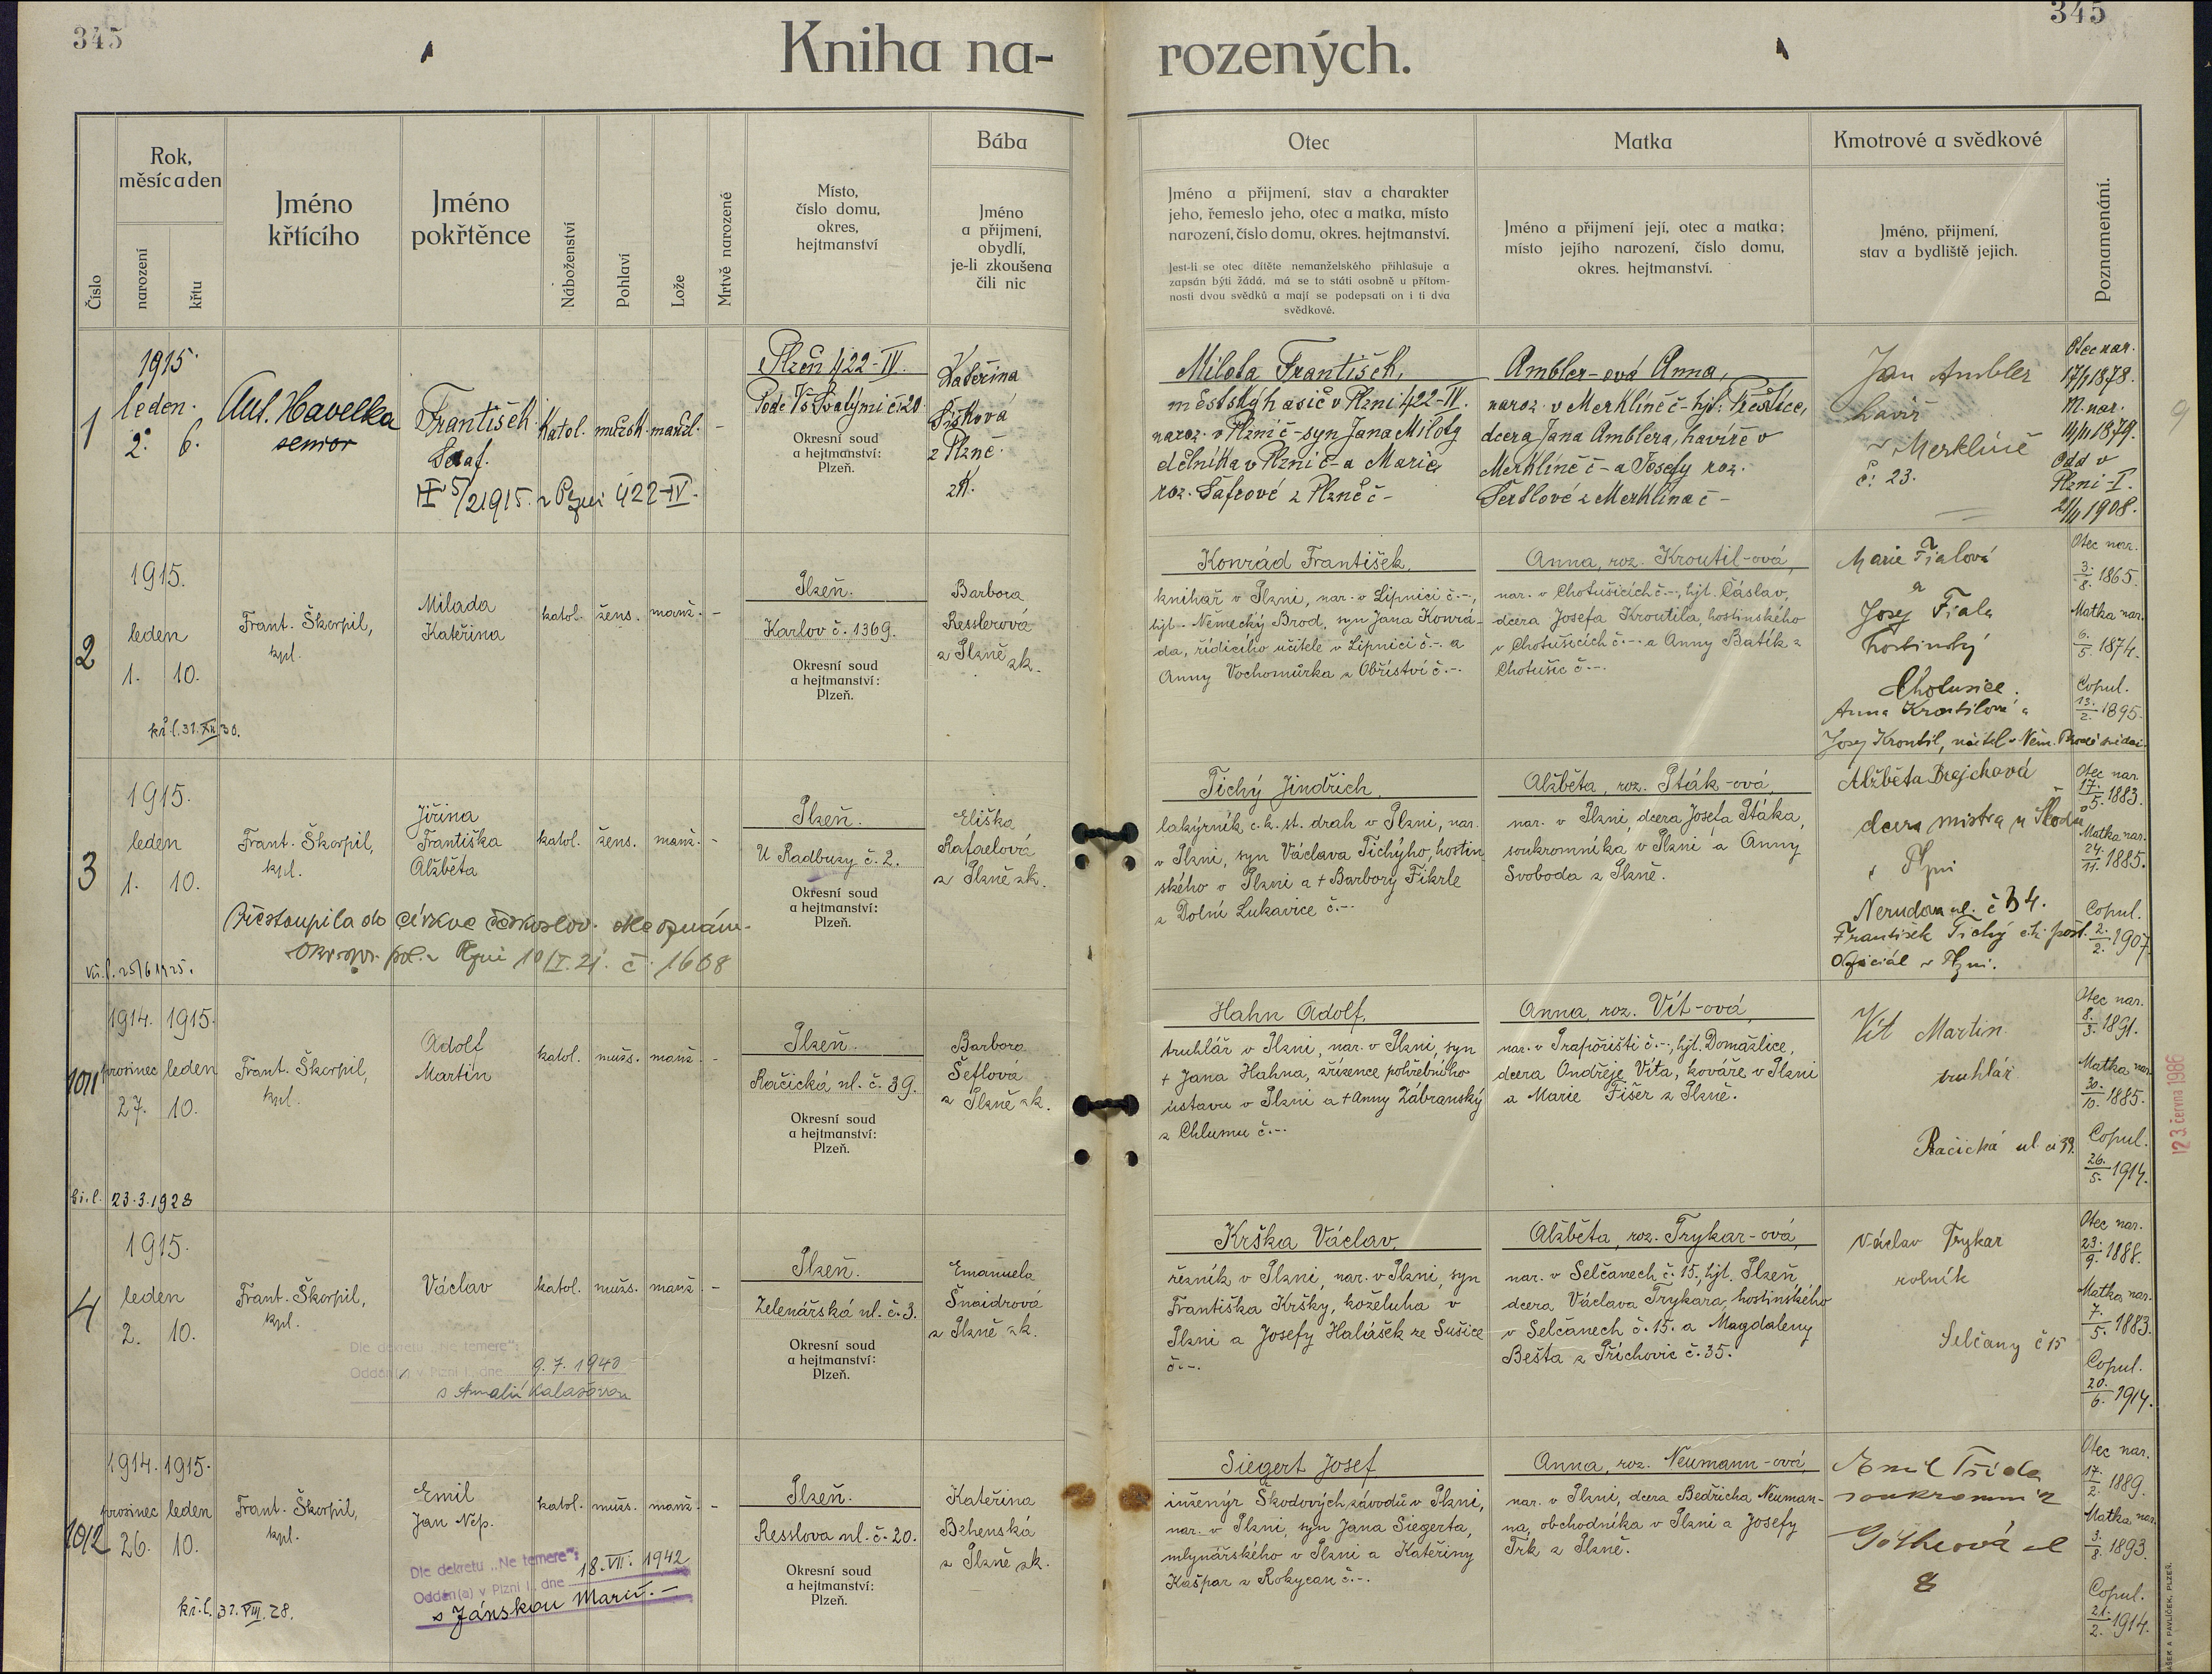 345
345
Kniha na-
rozených.
Číslo
Rok,
měsíc a den
narození
křtu
Jméno
křtícího
Jméno
pokřtěnce
Náboženství
Pohlaví
Lože
Mrtvě narozené
Místo,
číslo domu,
okres,
hejtmanství
Bába
Jméno
a přijmení,
obydlí,
je-li zkoušena
čili nic
Otec
Jméno a přijmení, stav a charakter
jeho, řemeslo jeho, otec a matka, místo
narození, číslo domu, okres. hejtmanství.
Jest-li se otec dítěte nemanželského přihlašuje a
zapsán býti žádá, má se to státi osobně u přítom-
nosti dvou svědků a mají se podepsati on i ti dva
svědkové.
Matka
Jméno a přijmení její, otec a matka;
místo jejího narození, číslo domu,
okres. hejtmanství.
Kmotrové a svědkové
Jméno, přijmení,
stav a bydliště jejich.
Poznamenání.
1
1915.
leden.
2. 6.
Ant. Havelka
senior
František
Seraf.
5/2 1915. v Plzni 422-IV.
Katol.
mužsk.
manžel.
-
Plzeň 422-IV.
Pode Vš. Svatými č. 20
Okresní soud
a hejtmanství:
Plzeň.
Kateřina
Šišková
z Plzně.
zk.
Milota František,
městský hasič v Plzni 422-IV.
naroz. v Plzni č - syn Jana Miloty
dělníka v Plzni č - a Marie
roz. Šafrové z Plzně č -
Ambler-ová Anna,
naroz. v Merklíně č - hjt: Přeštice,
dcera Jana Amblera, havíře v
Merklíně č - a Josefy roz.
z Merklína č -
Jan Ambler
havíř
v Merklíně
č. 23.
Otec nar.
17/1 1878.
M. nar.
1879.
Odd v
Plzni-I.
1908.
9
2
1915.
leden
1. 10.
kř. l. 31. XII. 30.
Frant. Škorpil,
kpl.
Milada
Kateřina
katol.
žens.
manž.
-
Plzeň.
Karlov č. 1369.
Okresní soud
a hejtmanství:
Plzeň.
Barbora
Resslerová
z Plzně zk.
Konrád František,
knihař v Plzni, nar. v Lipnici č.-,
hjt. Německý Brod, syn Jana Konrá-
da, řídícího učitele v Lipnici č.-. a
Anny Vochomůrka z Obříství č.-.
Anna, roz. Kroutil-ová,
nar. v Chotusicích č.-, hjt. Čáslav,
dcera Josefa Kroutila, hostinského
v Chotusicích č.-. a Anny Batík z
Chotusic č.-.
Marie Fialová
a
Josef Fiala
hostinský
Chotusice.
Anna Kroutilová a
Josef Kroutil, učitel v Něm. Brodě svědci.
Otec nar.
3./8. 1865.
Matka nar.
6./5. 1874.
Copul.
13./2. 1895.
3
1915.
leden
1. 10.
25/6 1925.
Frant. Škorpil,
kpl.
Jiřina
Františka
Alžběta
Přestoupila do církve českoslov. dle oznám.
Okr. spr. pol. v Plzni 10/I. 21. č. 1608
katol.
žens.
manž.
-
Plzeň.
U Radbuzy č. 2.
Okresní soud
a hejtmanství:
Plzeň.
Eliška
Rafaelová
z Plzně zk.
Tichý Jindřich,
lakýrník c.k. st. drah v Plzni, nar.
v Plzni, syn Václava Tichýho, hostin-
ského v Plzni a + Barbory Fikrle
z Dolní Lukavice č.-.
Alžběta, roz. Pták-ová,
nar. v Plzni, dcera Josefa Ptáka,
soukromníka v Plzni a Anny
Svoboda z Plzně.
Alžběta Brejchová
dcera mistra u Škody
v Plzni
Nerudova ul. č 34.
František Tichý c.k. pošt.
Oficiál v Plzni.
Otec nar.
17./5. 1883.
Matka nar.
24./11. 1885.
Copul.
2./2. 1907.
1011
1914. 1915.
prosinec leden
27. 10.
23.3.1928
Frant. Škorpil,
kpl.
Adolf
Martin
katol.
mužs.
manž.
-
Plzeň.
Račická ul. č. 39.
Okresní soud
a hejtmanství:
Plzeň.
Barbora
Šeflová
z Plzně zk.
Hahn Adolf,
truhlář v Plzni, nar. v Plzni, syn
+ Jana Hahna, zřízence pohřebního
ústavu v Plzni a + Anny Zábranský
z Chlumu č.-.
Anna, roz. Vít-ová,
nar. v Trapořišti č.-, hjt. Domažlice,
dcera Ondřeje Víta, kováře v Plzni
a Marie Fišer z Plzně.
Vít Martin
truhlář
Račická ul. č 39.
Otec nar.
8./3. 1891.
Matka nar.
30./10. 1885.
Copul.
26./5. 1914.
23. června 1986
4
1915.
leden
2. 10.
Frant. Škorpil,
kpl.
Václav
Dle dekretu „Ne temere":
Oddán(a) v Plzni I., dne 9. 7. 1940
s Amalií Kalašovou
katol.
mužs.
manž.
-
Plzeň.
Zelenářská ul. č. 3.
Okresní soud
a hejtmanství:
Plzeň.
Emanuela
Šnaidrová
z Plzně zk.
Krška Václav,
řezník v Plzni, nar. v Plzni, syn
Františka Kršky, koželuha v
Plzni a Josefy Haliášek ze Sušice
č.-.
Alžběta, roz. Trykar-ová,
nar. v Selčanech č. 15., hjt. Plzeň,
dcera Václava Trykara, hostinského
v Selčanech č. 15. a Magdaleny
Bešta z Příchovic č. 35.
Václav Trykar
rolník
Selčany č 15
Otec nar.
23./9. 1888.
Matka nar.
7./5. 1883.
Copul.
20./6. 1914.
1012
1914. 1915.
prosinec leden
26. 10.
kř. l. 31. VIII. 28.
Frant. Škorpil,
kpl.
Emil
Jan Nep.
Dle dekretu „Ne temere":
Oddán(a) v Plzni I., dne 18. VII. 1942
s Jánskou Marií.-
katol.
mužs.
manž.
-
Plzeň.
Resslova ul. č. 20.
Okresní soud
a hejtmanství:
Plzeň.
Kateřina
Behenská
z Plzně zk.
Siegert Josef
inženýr Škodových závodů v Plzni,
nar. v Plzni, syn Jana Siegerta,
mlynářského v Plzni a Kateřiny
Kašpar z Rokycan č.-.
Anna, roz. Neumann-ová,
nar. v Plzni, dcera Bedřicha Neuman-
na, obchodníka v Plzni a Josefy
Trk z Plzně.
Emil Třída
soukromník
Götheová ul
8
Otec nar.
17./2. 1889.
Matka nar.
3./8. 1893.
Copul.
21./2. 1914.
A PAVLÍČEK, PLZEŇ.